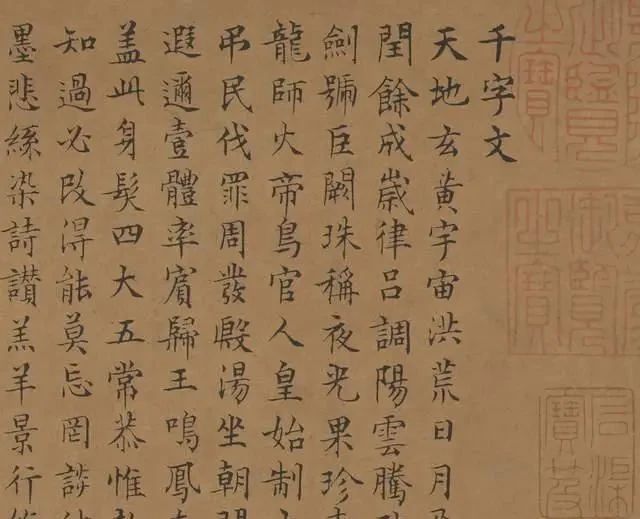 千字文
天地玄黃宇宙洪荒日月
閏餘成歲律呂調陽雲騰
劍號巨闕珠稱夜光果珍
龍師火帝鳥官人皇始制
吊民伐罪周發殷湯坐朝
遐邇壹體率賓歸王鳴鳳
盖此身髮四大五常恭惟
知過必改得能莫忘罔談
墨悲絲染詩讃羔羊景行
御覽
之寶
御覽
之寶
石渠
寶笈